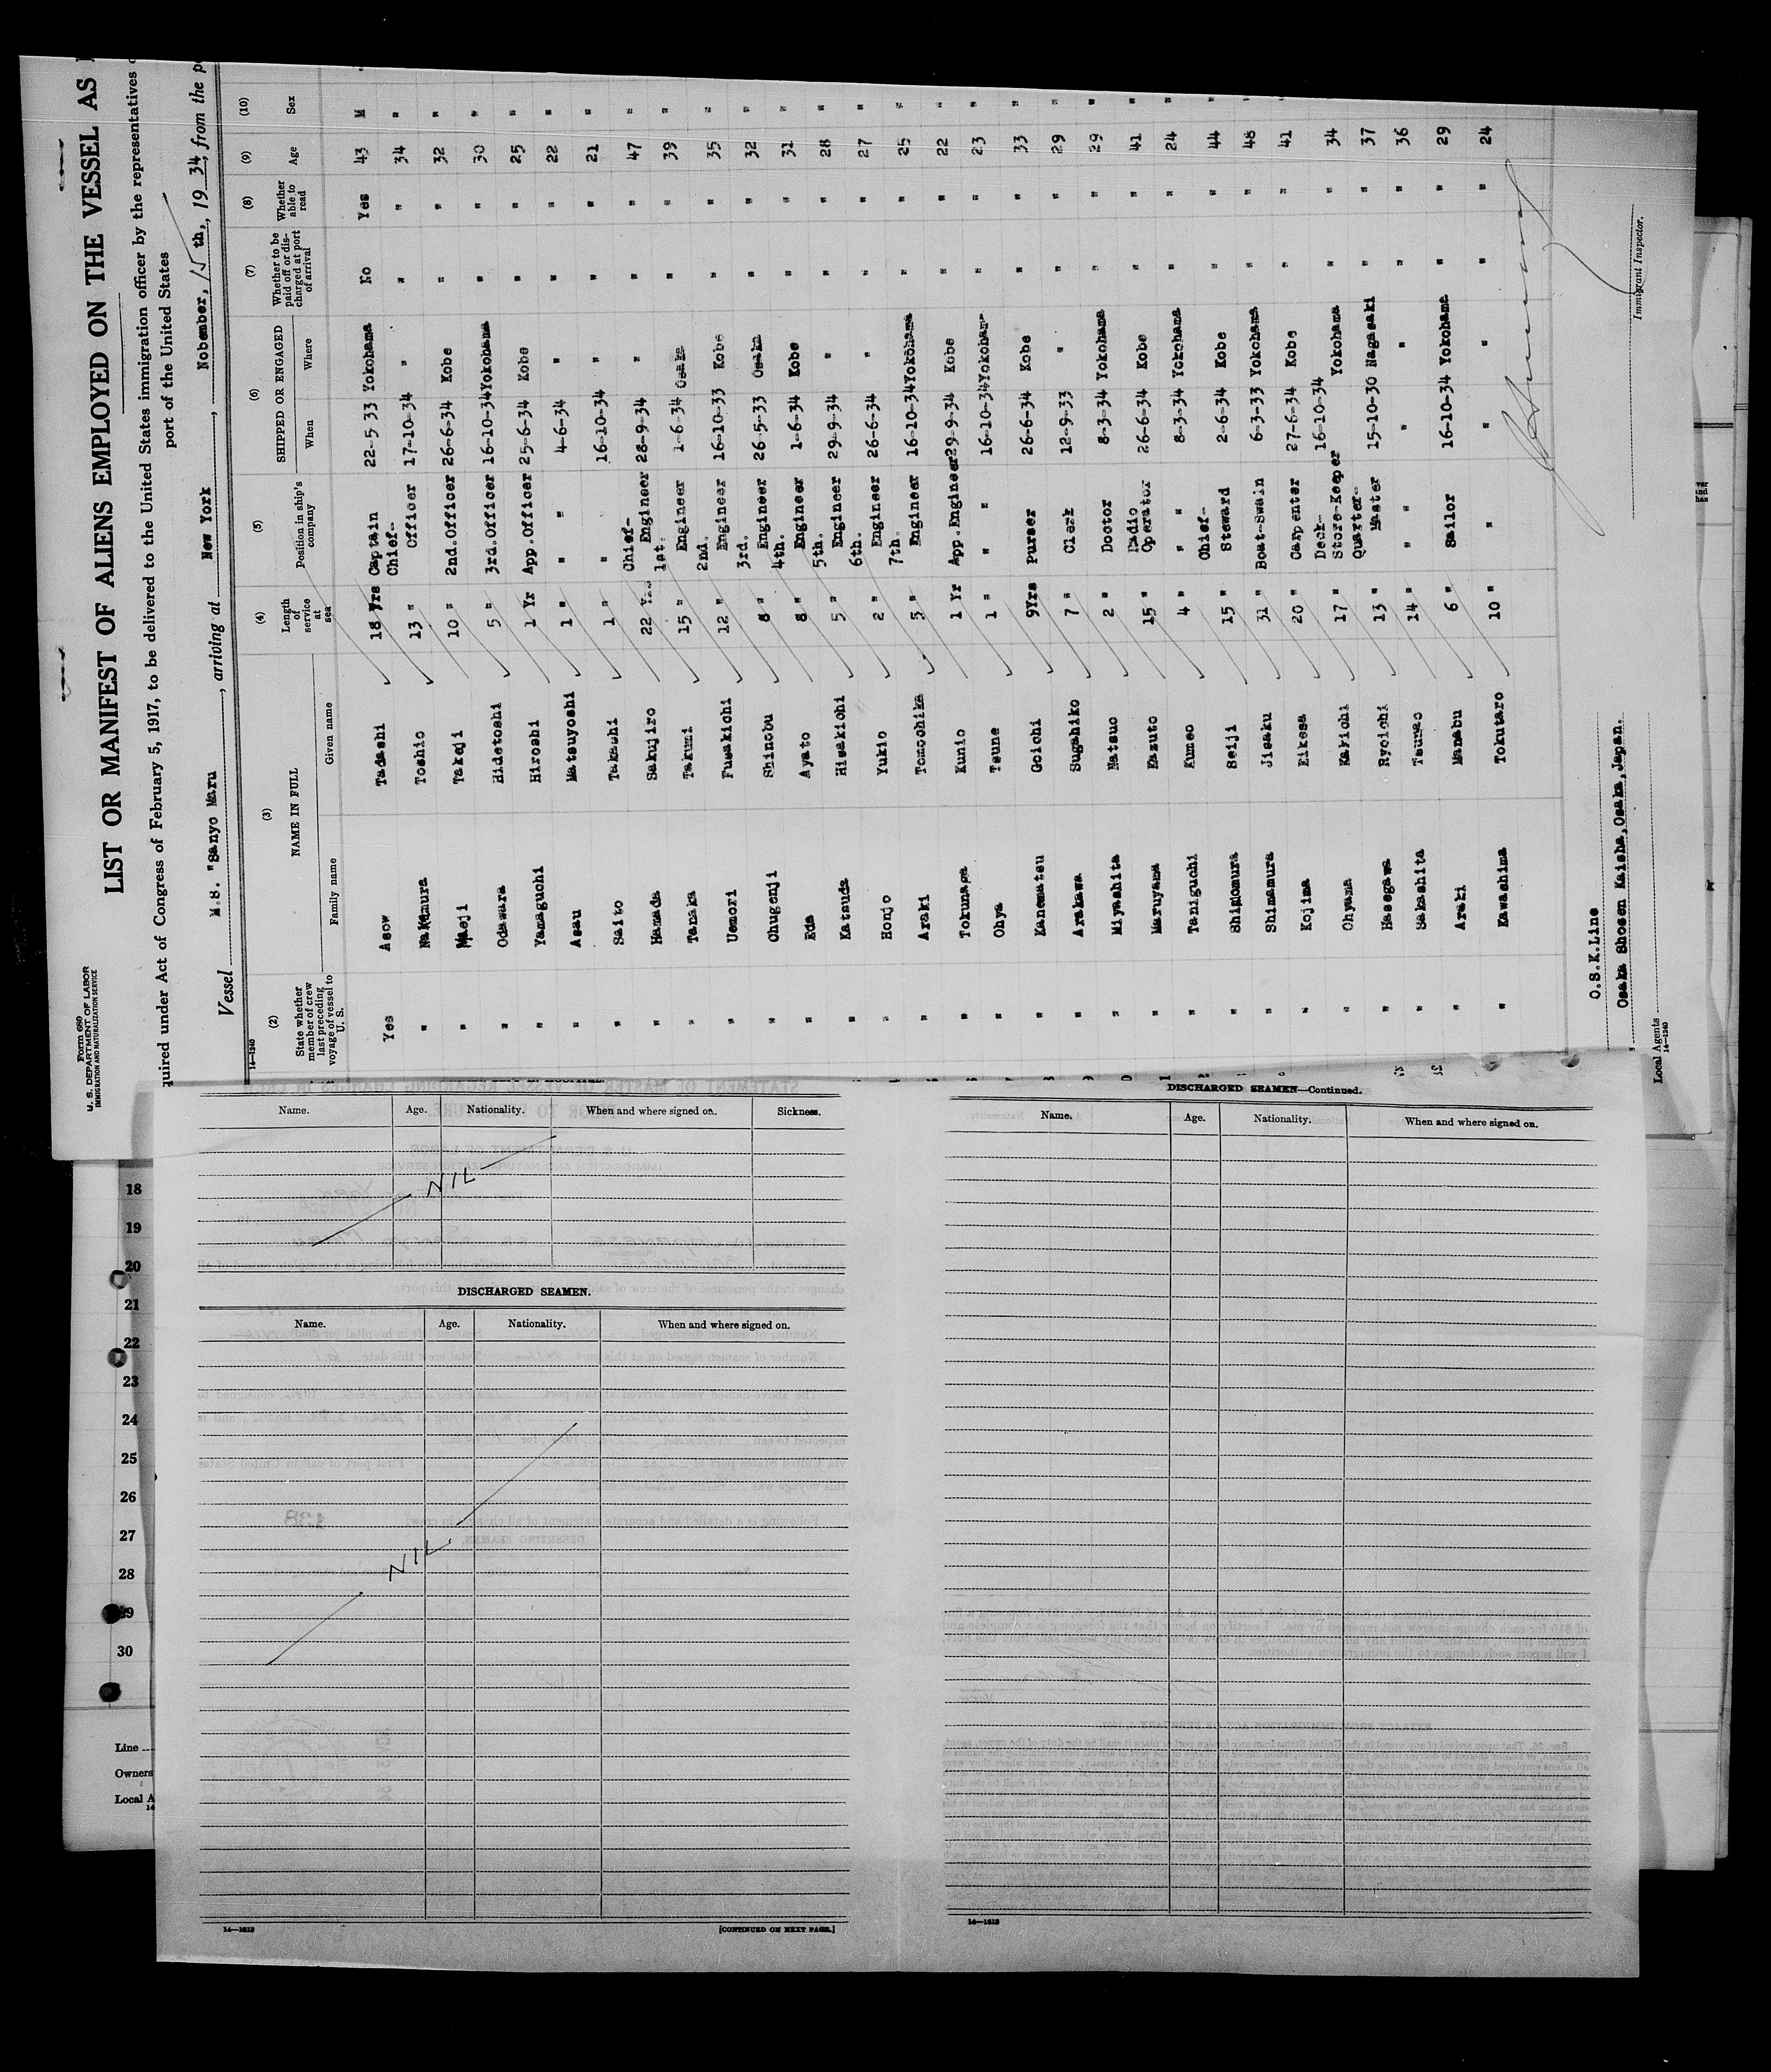 Form 680
U. S. DEPARTMENT OF LABOR
IMMIGRATION AND NATURALIZATION SERVICE
LIST OR MANIFEST OF ALIENS EMPLOYED ON THE VESSEL AS
quired under Act of Congress of February 5, 1917, to be delivered to the United States immigration officer by the representatives
port of the United States
Vessel M.S. "Sanyo Maru, arriving at New York, Nobember, 15 th, 1934, from the p
14—1240
(2) (3) (4) (5) (6) (7) (8) (9) (10)
State whether member of crew last preceding voyage of vessel to U. S. NAME IN FULL Length of service at sea Position in ship's company SHIPPED OR ENGAGED Whether to be paid off or discharged at port of arrival Whether able to read Age Sex
Family name Given name When Where
Yes Asow Tadashi 18 Yrs Captain 22-5 33 Yokohama No Yes 43 M
" Nakamura Toshio 13 " Chief-Officer 17-10-34 " " " 34 "
" Maeji Takeji 10 " 2nd.Officer 26-6-34 Kobe " " 32 "
" Odawara Hidetoshi 5 " 3rd.Officer 16-10-34 Yokohama " " 30 "
" Yamaguchi Hiroshi 1 Yr App.Officer 25-6-34 Kobe " " 25 "
" Asau Matsuyoshi 1 " " 4-6-34 " " " 22 "
" Saito Takashi 1 " " 16-10-34 " " " 21 "
" Hamada Sakujiro 22 Yrs Chief-Engineer 28-9-34 " " " 47 "
" Tanaka Takumi 15 " 1st. Engineer 1-6-34 Osaka " " 39 "
" Uemori Fusakichi 12 " 2nd. Engineer 16-10-33 Kobe " " 35 "
" Chugenji Shinobu 8 " 3rd. Engineer 26-5-33 Osaka " " 32 "
" Eda Ayato 8 " 4th. Engineer 1-6-34 Kobe " " 31 "
" Katsuda Hisakichi 5 " 5th. Engineer 29-9-34 " " " 28 "
" Honjo Yukio 2 " 6th. Engineer 26-6-34 " " " 27 "
" Araki Tomochika 5 " 7th. Engineer 16-10-34 Yokohama " " 25 "
" Tokunaga Kunio 1 Yr App.Engineer 29-9-34 Kobe " " 22 "
" Ohya Tsune 1 " " 16-10-34 Yokohama " " 23 "
" Kanematsu Goichi 9Yrs Purser 26-6-34 Kobe " " 33 "
" Arakawa Sugahiko 7 " Clerk 12-9-33 " " " 29 "
" Miyashita Matsuo 2 " Doctor 8-3-34 Yokohama " " 29 "
" Maruyama Kazuto 15 " Radio Operator 26-6-34 Kobe " " 41 "
" Taniguchi Kumeo 4 " " 8-3-34 Yokohama " " 24 "
" Shimomura Seiji 15 " Chief-Steward 2-6-34 Kobe " " 44 "
" Shimamura Jisaku 31 " Boat-Swain 6-3-33 Yokohama " " 48 "
" Kojima Eikesa 20 " Carpenter 27-6-34 Kobe " " 41 "
" Ohyama Kakichi 17 " Deck-Store-Keeper 16-10-34 Yokohama " " 34
" Hasegawa Ryoichi 13 " Quarter-Master 15-10-30 Nagasaki " " 37
" Sakashita Tsunao 14 " " " " " " 36
" Araki Manabu 6 " Sailor 16-10-34 Yokohama " " 29
" Kawashima Tokutaro 10 " " " " " " 24
O.S.K.Line
Osaka Shosen Kaisha,Osaka,Japan.
Local Agents
14—1240
Immigrant Inspector.
Name. Age. Nationality. When and where signed on. Sickness.
NIL
DISCHARGED SEAMEN.
Name. Age. Nationality. When and where signed on.
NIL
14—1613
[CONTINUED ON NEXT PAGE.]
DISCHARGED SEAMEN—Continued.
Name. Age. Nationality. When and where signed on.
14—1613
18
19
20
21
22
23
24
25
26
27
28
29
30
Line
Owners
Local A
14